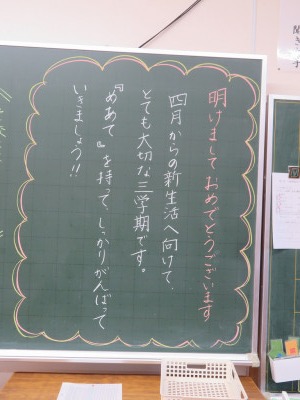 明けまして おめでとうございます
四月からの新生活へ向けて、
とても大切な三学期です。
『めあて』を持って、しっかりがんばって
いきましょう!!